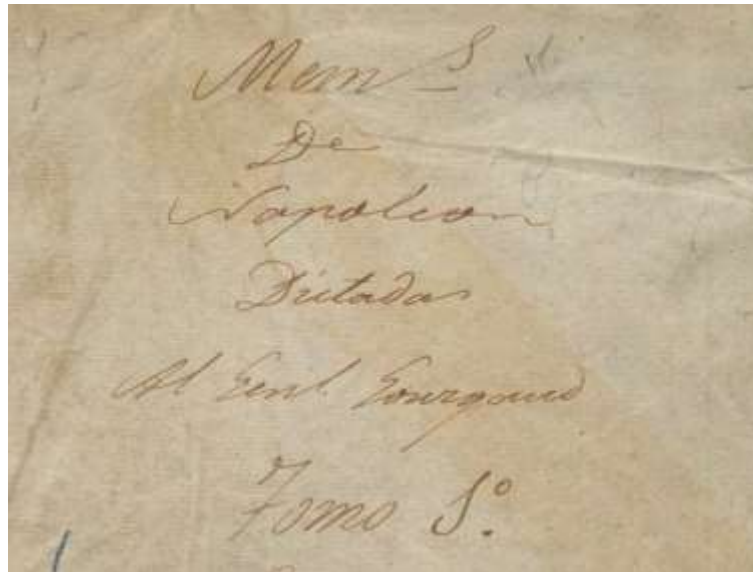 Mem.s
De
Napoleon
Dictadas
Al Genl. Gourgaud
Tomo 1º.